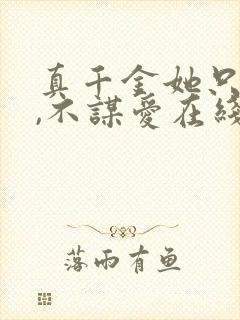 真千金她只
,不謀愛在綫
落雨有鱼